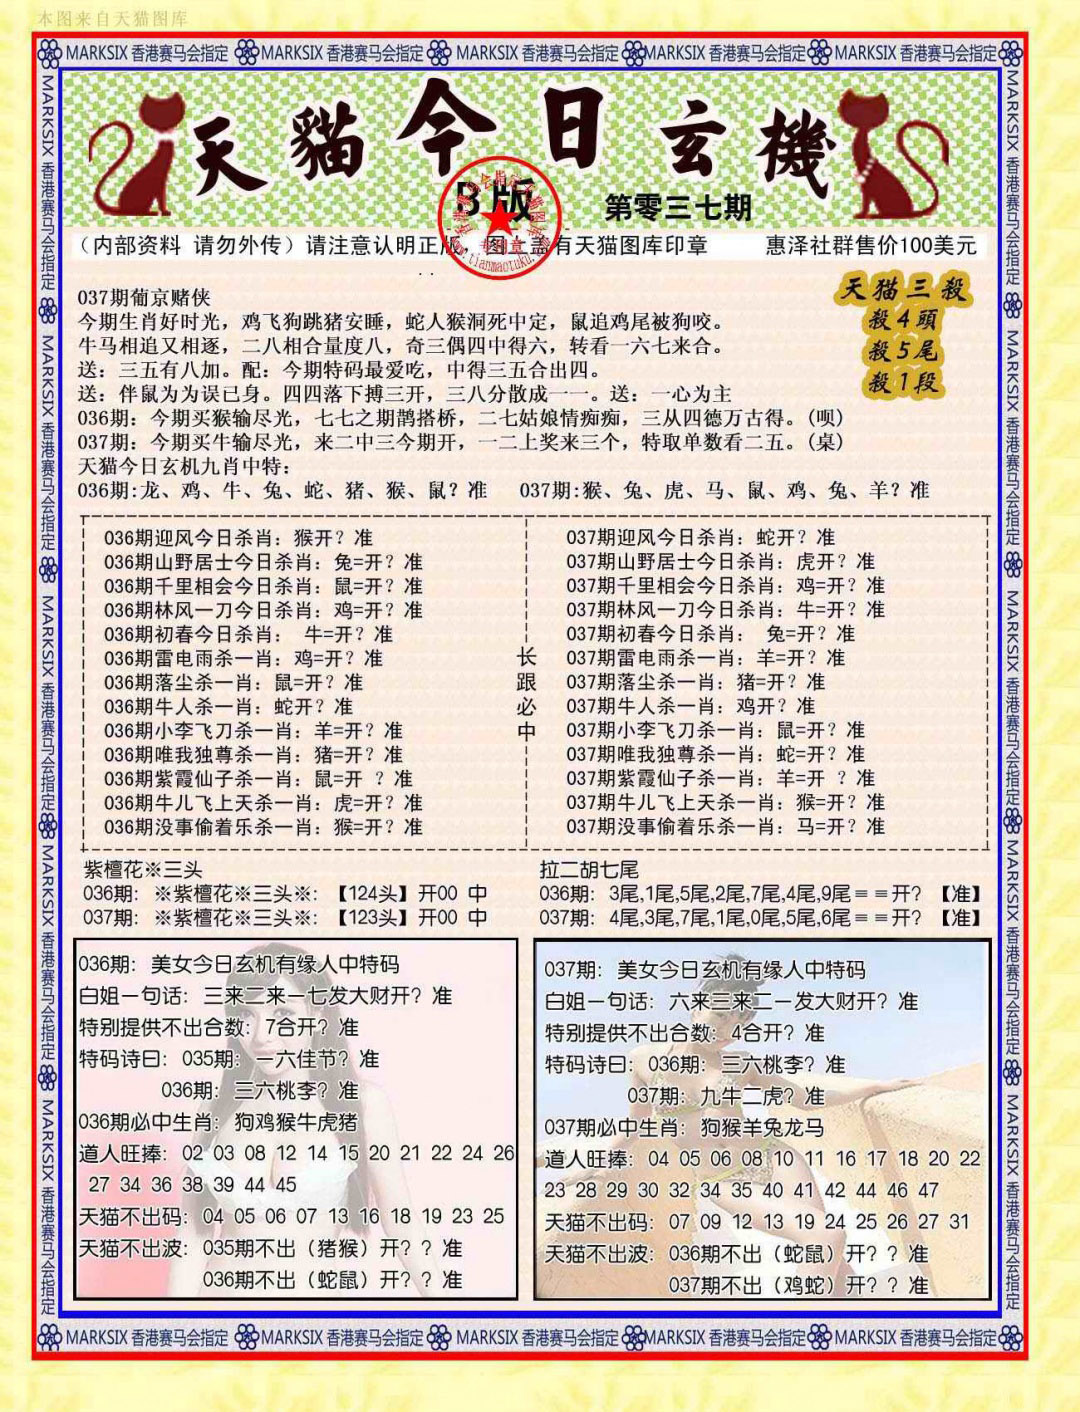 本图来自天猫图库
MARKSIX 香港赛马会指定 MARKSIX 香港赛马会指定 MARKSIX 香港赛马会指定 MARKSIX 香港赛马会指定 MARKSIX 香港赛马会指定
天貓今日玄機
B版
第零三七期
(内部资料 请勿外传)请注意认明正版，图上盖有天猫图库印章 惠泽社群售价100美元
www.tianmaotuku.com
天猫三殺
殺4頭
殺5尾
殺1段
037期葡京赌侠
今期生肖好时光，鸡飞狗跳猪安睡，蛇人猴洞死中定，鼠追鸡尾被狗咬。
牛马相追又相逐，二八相合量度八，奇三偶四中得六，转看一六七来合。
送：三五有八加。配：今期特码最爱吃，中得三五合出四。
送：伴鼠为为误已身。四四落下搏三开，三八分散成一一。送：一心为主
036期：今期买猴输尽光，七七之期鹊搭桥，二七姑娘情痴痴，三从四德万古得。(呗)
037期：今期买牛输尽光，来二中三今期开，一二上奖来三个，特取单数看二五。(桌)
天猫今日玄机九肖中特：
036期:龙、鸡、牛、兔、蛇、猪、猴、鼠？准 037期:猴、兔、虎、马、鼠、鸡、兔、羊？准
036期迎风今日杀肖：猴开？准
036期山野居士今日杀肖：兔=开？准
036期千里相会今日杀肖：鼠=开？准
036期林风一刀今日杀肖：鸡=开？准
036期初春今日杀肖： 牛=开？准
036期雷电雨杀一肖：鸡=开？准
036期落尘杀一肖：鼠=开？准
036期牛人杀一肖：蛇开？准
036期小李飞刀杀一肖：羊=开？准
036期唯我独尊杀一肖：猪=开？准
036期紫霞仙子杀一肖：鼠=开 ？准
036期牛儿飞上天杀一肖：虎=开？准
036期没事偷着乐杀一肖：猴=开？准
长跟必中
037期迎风今日杀肖：蛇开？准
037期山野居士今日杀肖：虎开？准
037期千里相会今日杀肖：鸡=开？准
037期林风一刀今日杀肖：牛=开？准
037期初春今日杀肖： 兔=开？准
037期雷电雨杀一肖：羊=开？准
037期落尘杀一肖：猪=开？准
037期牛人杀一肖：鸡开？准
037期小李飞刀杀一肖：鼠=开？准
037期唯我独尊杀一肖：蛇=开？准
037期紫霞仙子杀一肖：羊=开 ？准
037期牛儿飞上天杀一肖：猴=开？准
037期没事偷着乐杀一肖：马=开？准
紫檀花※三头
036期：※紫檀花※三头※：【124头】开00 中
037期：※紫檀花※三头※：【123头】开00 中
拉二胡七尾
036期：3尾,1尾,5尾,2尾,7尾,4尾,9尾==开？【准】
037期：4尾,3尾,7尾,1尾,0尾,5尾,6尾==开？【准】
036期：美女今日玄机有缘人中特码
白姐一句话：三来二来一七发大财开？准
特别提供不出合数：7合开？准
特码诗曰：035期：一六佳节？准
036期：三六桃李？准
036期必中生肖：狗鸡猴牛虎猪
道人旺捧：02 03 08 12 14 15 20 21 22 24 26
27 34 36 38 39 44 45
天猫不出码：04 05 06 07 13 16 18 19 23 25
天猫不出波：035期不出（猪猴）开？？准
036期不出（蛇鼠）开？？准
037期：美女今日玄机有缘人中特码
白姐一句话：六来三来二一发大财开？准
特别提供不出合数：4合开？准
特码诗曰：036期：三六桃李？准
037期：九牛二虎？准
037期必中生肖：狗猴羊兔龙马
道人旺捧：04 05 06 08 10 11 16 17 18 20 22
23 28 29 30 32 34 35 40 41 42 44 46 47
天猫不出码：07 09 12 13 19 24 25 26 27 31
天猫不出波：036期不出（蛇鼠）开？？准
037期不出（鸡蛇）开？？准
MARKSIX 香港赛马会指定 MARKSIX 香港赛马会指定 MARKSIX 香港赛马会指定 MARKSIX 香港赛马会指定 MARKSIX 香港赛马会指定
MARKSIX 香港赛马会指定 MARKSIX 香港赛马会指定 MARKSIX 香港赛马会指定 MARKSIX 香港赛马会指定 MARKSIX 香港赛马会指定
MARKSIX 香港赛马会指定 MARKSIX 香港赛马会指定 MARKSIX 香港赛马会指定 MARKSIX 香港赛马会指定 MARKSIX 香港赛马会指定